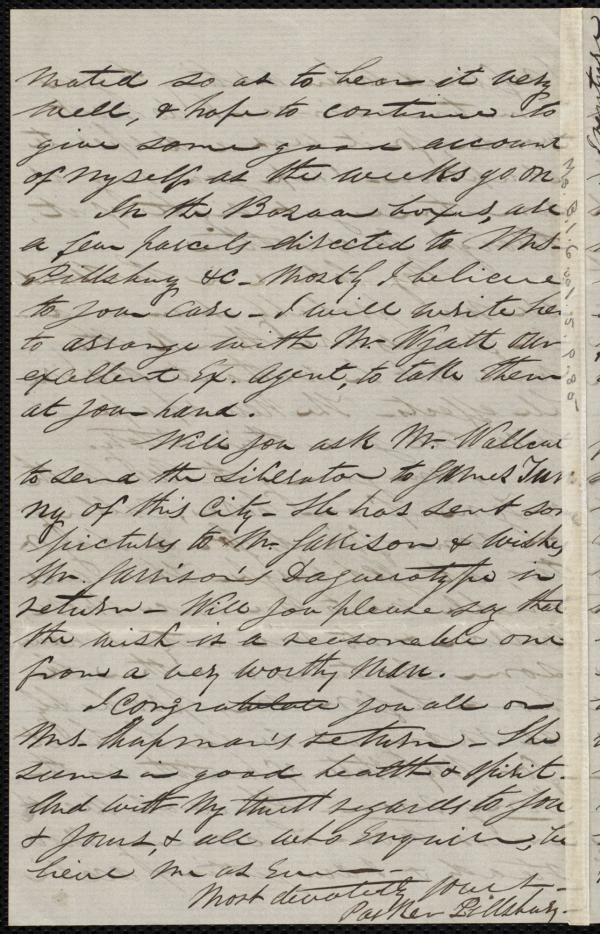 mated so as to bear it very
well, & hope to continue to
give some good account
of myself as the weeks go on.
In the Bazaar boxes, are
a few parcels directed to Mrs.
Pillsbury &c - mostly I believe
to your care - I will write her
to arrange with Mr. Wyatt our
excellent Ex. Agent, to take them
at your hand.
Will you ask Mr. Wallcut
to send the Liberator to James Tur
ny of this City - He has sent som
pictures to Mr. Garrison & wishes
Mr. Garrison's Daguerotype in
return - Will you please say that
the wish is a reasonable one
from a very worthy man.
I congratulate you all on
Mrs. Chapman's return - She
seems in good health & spirit.
And with my best regards to you
& yours, & all who enquire, be
lieve me as Ever -
Most devotedly yours -
Parker Pillsbury.